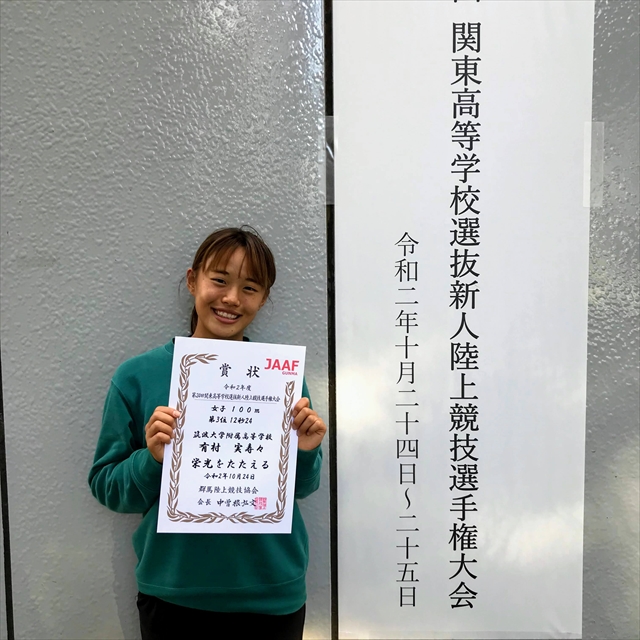 関東高等学校選抜新人陸上競技選手権大会
令和二年十月二十四日〜二十五日
賞状
JAAF
GUNMA
令和2年度
第24回関東高等学校選抜新人陸上競技選手権大会
女子 100m
第3位 12秒24
筑波大学附属高等学校
有村 実寿々
栄光をたたえる
令和2年10月24日
群馬陸上競技協会
会長 中曽根弘文